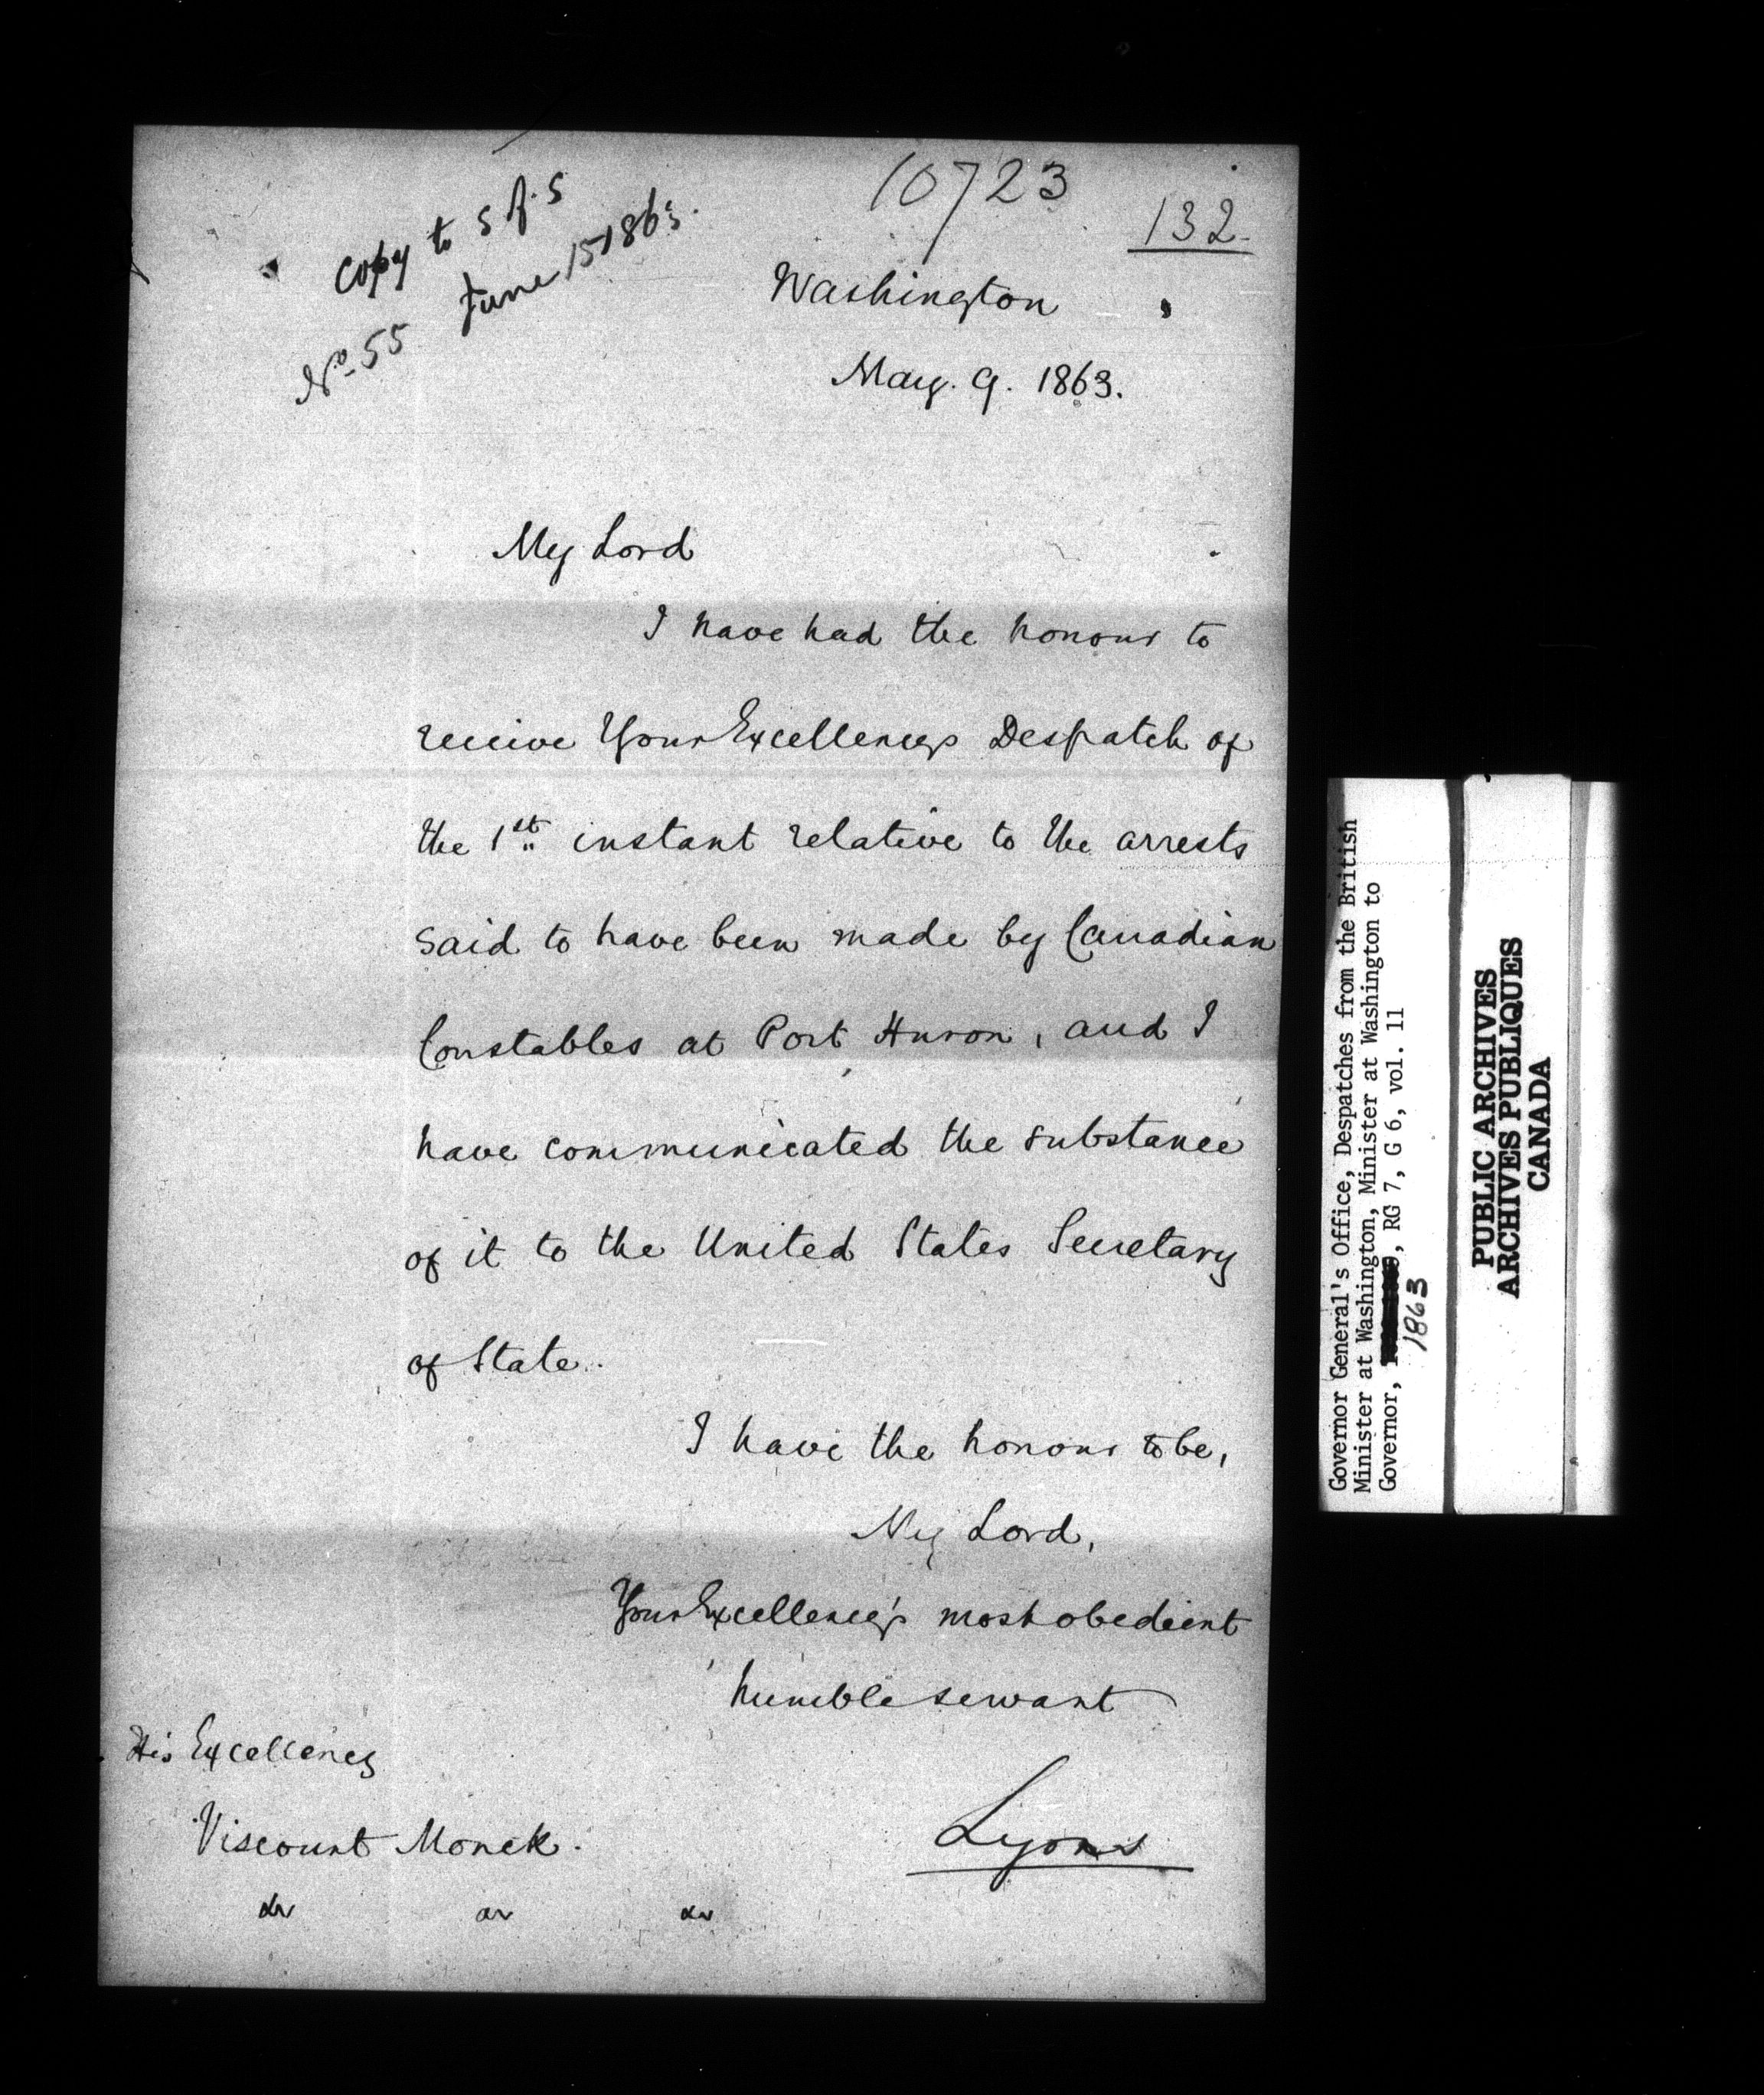 10723
132
Copy to S of S
No 55 June 15 1863.
Washington
May. 9. 1863.
My Lord
I have had the honour to
receive Your Excellency's Despatch of
the 1st instant relative to the arrests
said to have been made by Canadian
Constables at Port Huron, and I
have communicated the substance
of it to the United States Secretary
of State.
I have the honour to be,
My Lord,
Your Excellency's most obedient
humble servant
His Excellency
Viscount Monck.
Lyons
&c &c &c
Governor General's Office, Despatches from the British
Minister at Washington, Minister at Washington to
Governor, , RG 7, G 6, vol. 11
1863
PUBLIC ARCHIVES
ARCHIVES PUBLIQUES
CANADA